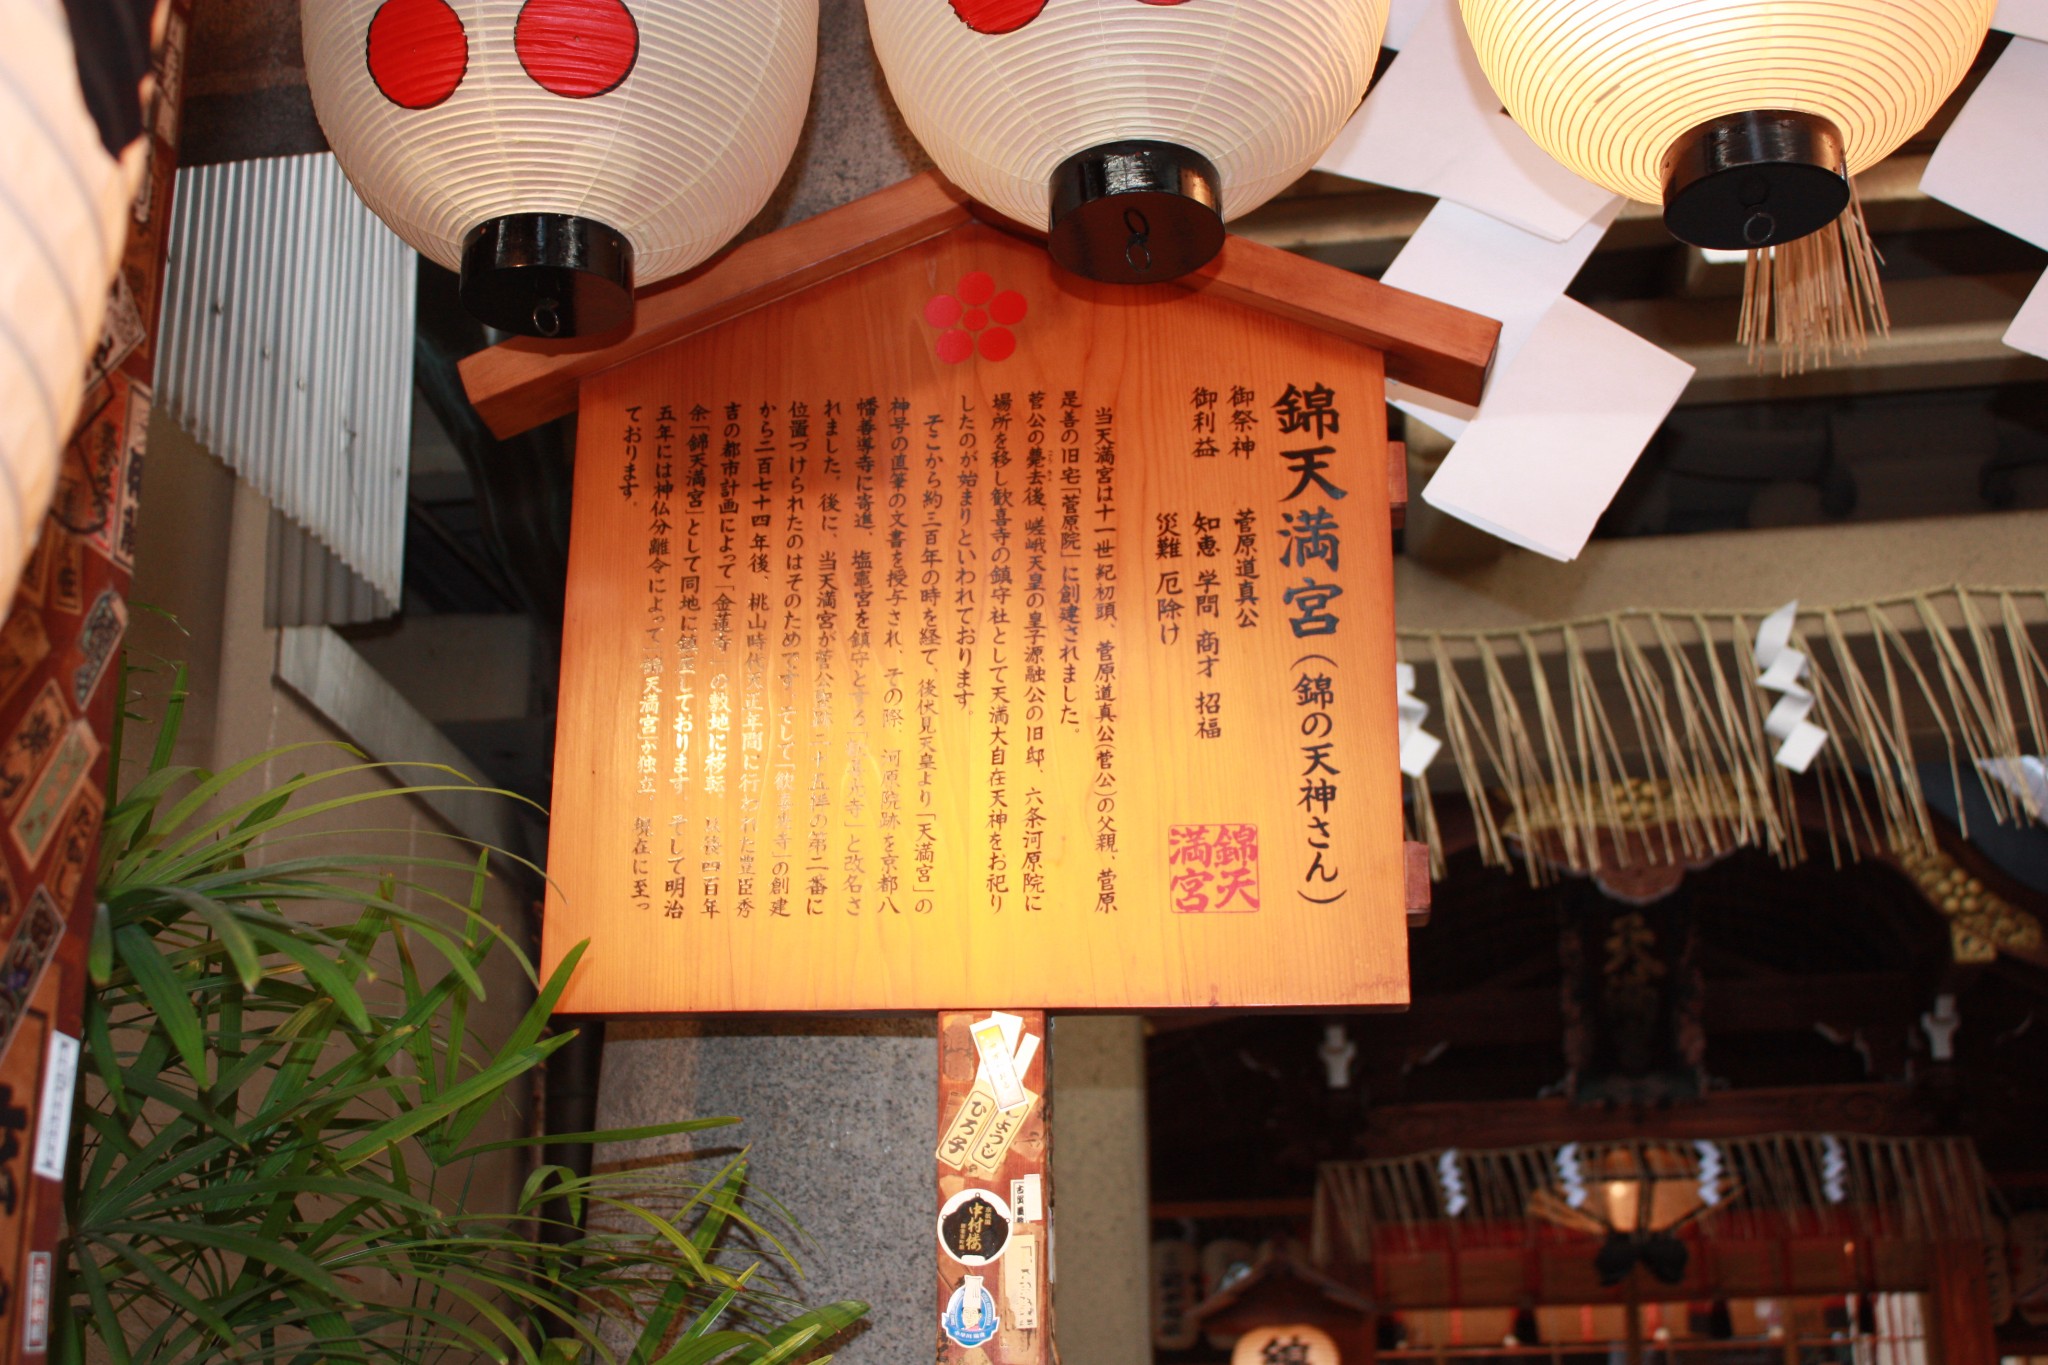 錦天満宮(錦の天神さん)
御祭神　菅原道真公
御利益　知恵 学問 商才 招福
災難 厄除け
錦天
満宮
当天満宮は十一世紀初頭、菅原道真公(菅公)の父親、菅原
是善の旧宅「菅原院」に創建されました。
菅公の薨去後、嵯峨天皇の皇子源融公の旧邸、六条河原院に
場所を移し歓喜寺の鎮守社として天満大自在天神をお祀り
したのが始まりといわれております。
そこから約三百年の時を経て、後伏見天皇より「天満宮」の
神号の直筆の文書を授与され、その際、河原院跡を京都八
幡善導寺に寄進、塩竃宮を鎮守とする「歓喜光寺」と改名さ
れました。後に、当天満宮が菅公聖蹟二十五拝の第二番に
位置づけられたのはそのためです。そして「歓喜寺」の創建
から二百七十四年後、桃山時代天正年間に行われた豊臣秀
吉の都市計画によって「金蓮寺」の敷地に移転、以後四百年
余「錦天満宮」として同地に鎮座しております。そして明治
五年には神仏分離令によって「錦天満宮」が独立、現在に至っ
ております。
しょうじ
ひろ子
中村楼
錦